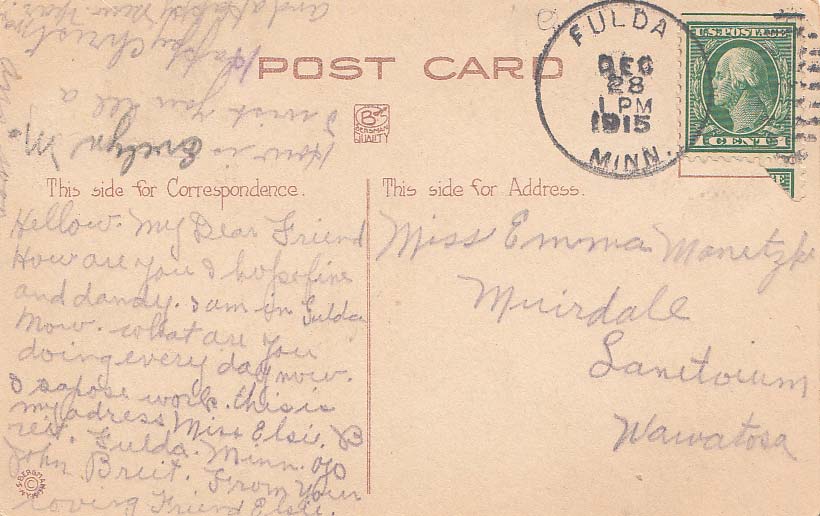 and a Happy New Year.
Happy Christmas
I wish you all a
How is Evelyn M.
POST CARD
BS
BERGMAN
QUALITY
FULDA
DEC
28
1 PM
1915
MINN.
U.S. POSTAGE
1 CENT 1
This side for Correspondence.
Hellow. My Dear Friend
How are you I hope fine
and dandy. I am in Fulda
Now. what are you
doing every day now.
I sapose work. this is
my adress Miss Elsie. B
reit. Fulda. Minn. c/o
John Breit. From Your
loving Friend Elsie.
This side for Address.
Miss Emma Manetzke
Muirdale
Sanitoium
Wawatosa